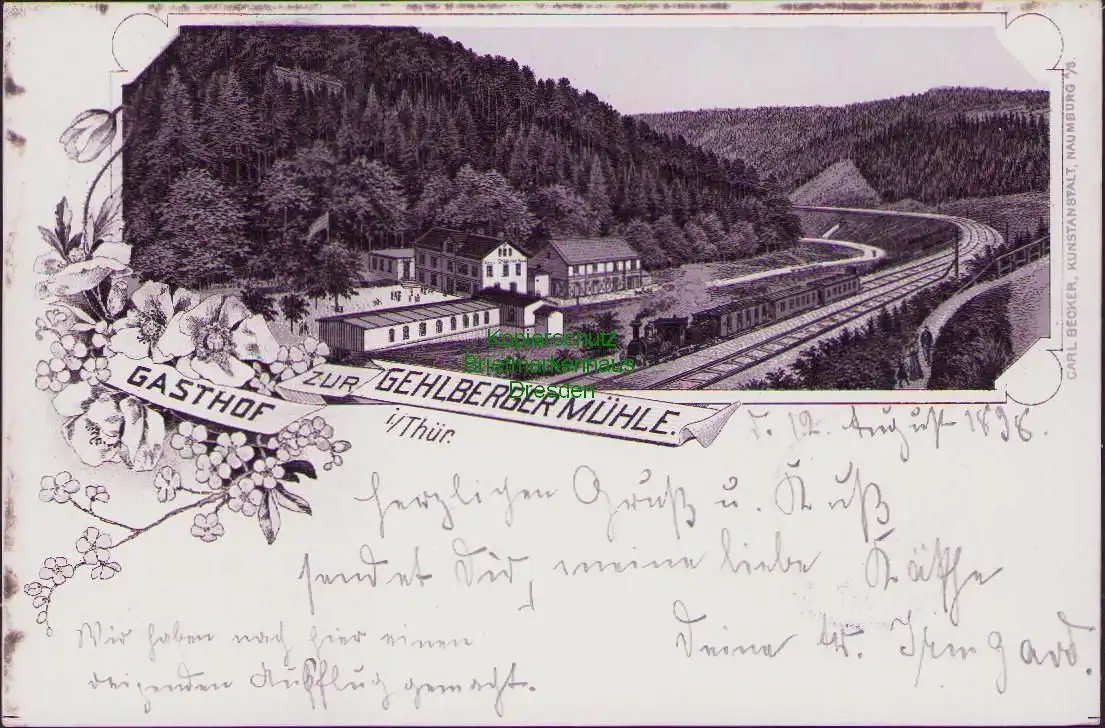 CARL BECKER, KUNSTANSTALT, NAUMBURG a/S.
Kopierschutz
Briefmarkenhaus
Dresden
GASTHOF ZUR GEHLBERGER MÜHLE.
i/Thür.
d. 12. August 1898.
Herzlichen Gruß u. Kuß
sendet Dir, meine liebe Käthe
Deine tr. Irmgard.
Wir haben nach hier einen
reizenden Ausflug gemacht.